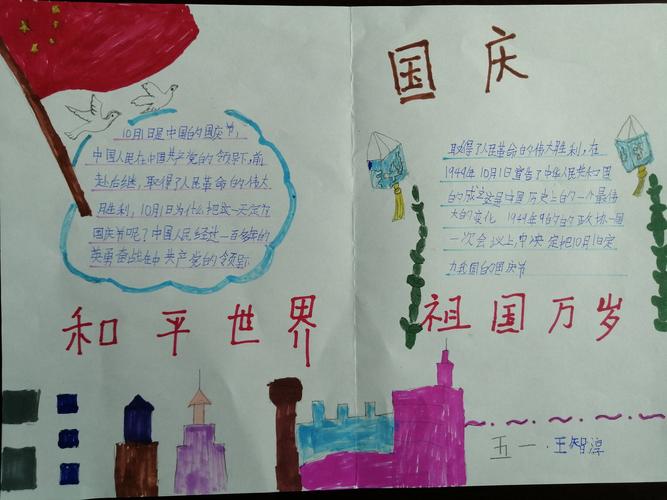 国庆
10月1日是中国的国庆节,
中国人民在中国共产党的领导下,前
赴后继,取得了人民革命的伟大
胜利,10月1日为什么把这一天定为
国庆节呢?中国人民经过一百多年的
英勇奋战在中共产党的领导
取得了人民革命的伟大胜利,在
1949年10月1日宣告了中华人民共和国
的成立这是中国历史上的一个最伟
大的变化 1949年9的的政协一届
一次会议上中决定把10月1日定
为我国的国庆节
和平世界
祖国万岁
五一.王智淳